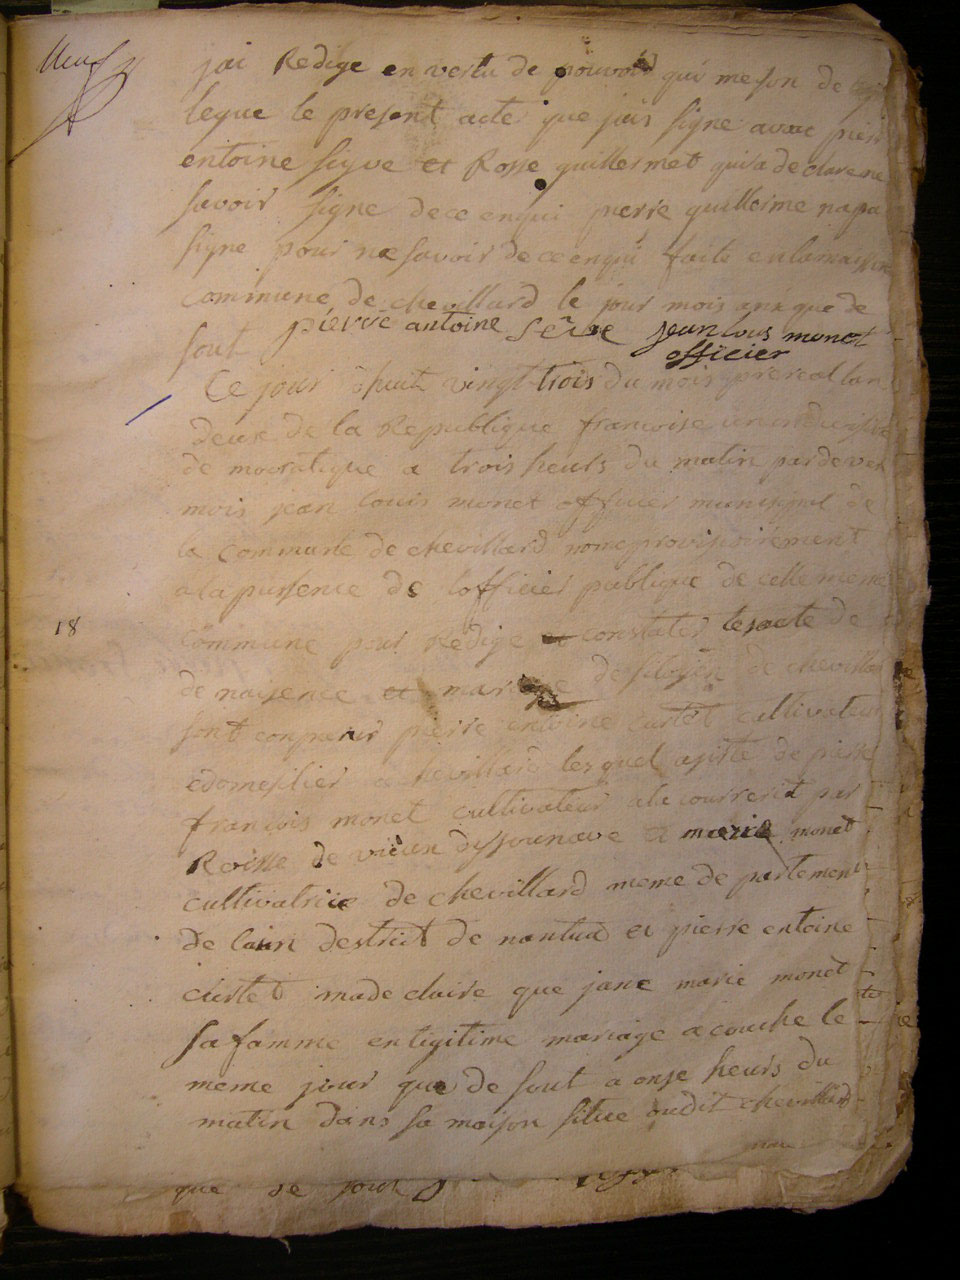 neuf
jai Redige en vertu de pouvoir qui me son de
leque le present acte que jais signe avac pierr
entoine seyve et Rosse guillermet quisa declare ne
savoir signe de ce enqui pierre guillerme napa
signe pour ne savoir de ce enqui faite en la maison
commune de chevillard le jour mois an que de
sout pierre antoine sêrve jean lous monet
officier
Ce jour dhuit vingt trois du mois prereal lan
deux de la Republique francoise une indivisible
de mocratique a trois heurs du matin par deven
mois jean louis monet officier municipal de
la Commune de chevillard nome provisoirement
a la pursence de lofficier publique de celle meme
18
commune pour Redige et constater les acte de
de naisence et mariage de sitoyen de chevillar
sont conparus pierre entoine curtet cultivateur
edomesilier a chevillard lesquel asiste de pierre
francois monet cultivateur a la courrerit par
Roisse de vieux dissounave et marie monet
cultivatrice de chevillard meme de partement
de lain destrit de nantua et pierre entoine
curtet ma de claire que jane marie monet
sa famme en ligitime mariage acouche le
meme jour que de sout a onse heurs du
matin dans sa maison situe audit chevillard
que de jour